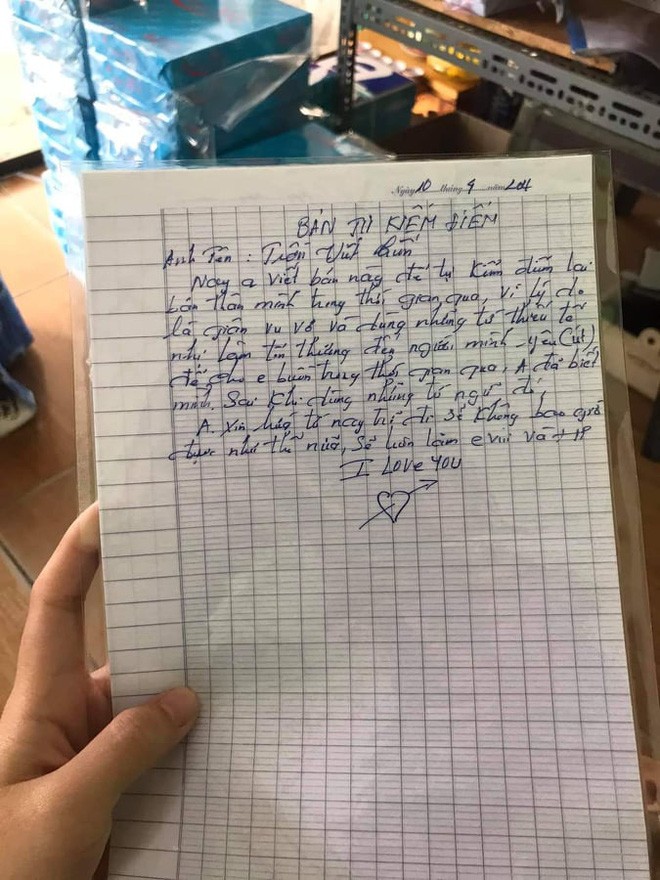 Ngày 10 tháng 9 năm 201
BẢN TỰ KIỂM ĐIỂM
Anh Tên : Trần Việt
Nay a viết bản này để tự kiểm điểm lại
bản thân mình trong thời gian qua, vì lý do
là giận vu vơ và dùng những từ thiếu tế
nhị làm tổn thương đến người mình yêu (út)
để cho e buồn trong thời gian qua, A đã biết
mình sai khi dùng những từ ngữ đó,
A. xin hứa từ nay trở đi sẽ không bao giờ
được như thế nữa, sẽ luôn làm e vui và + HP
I Love YOU